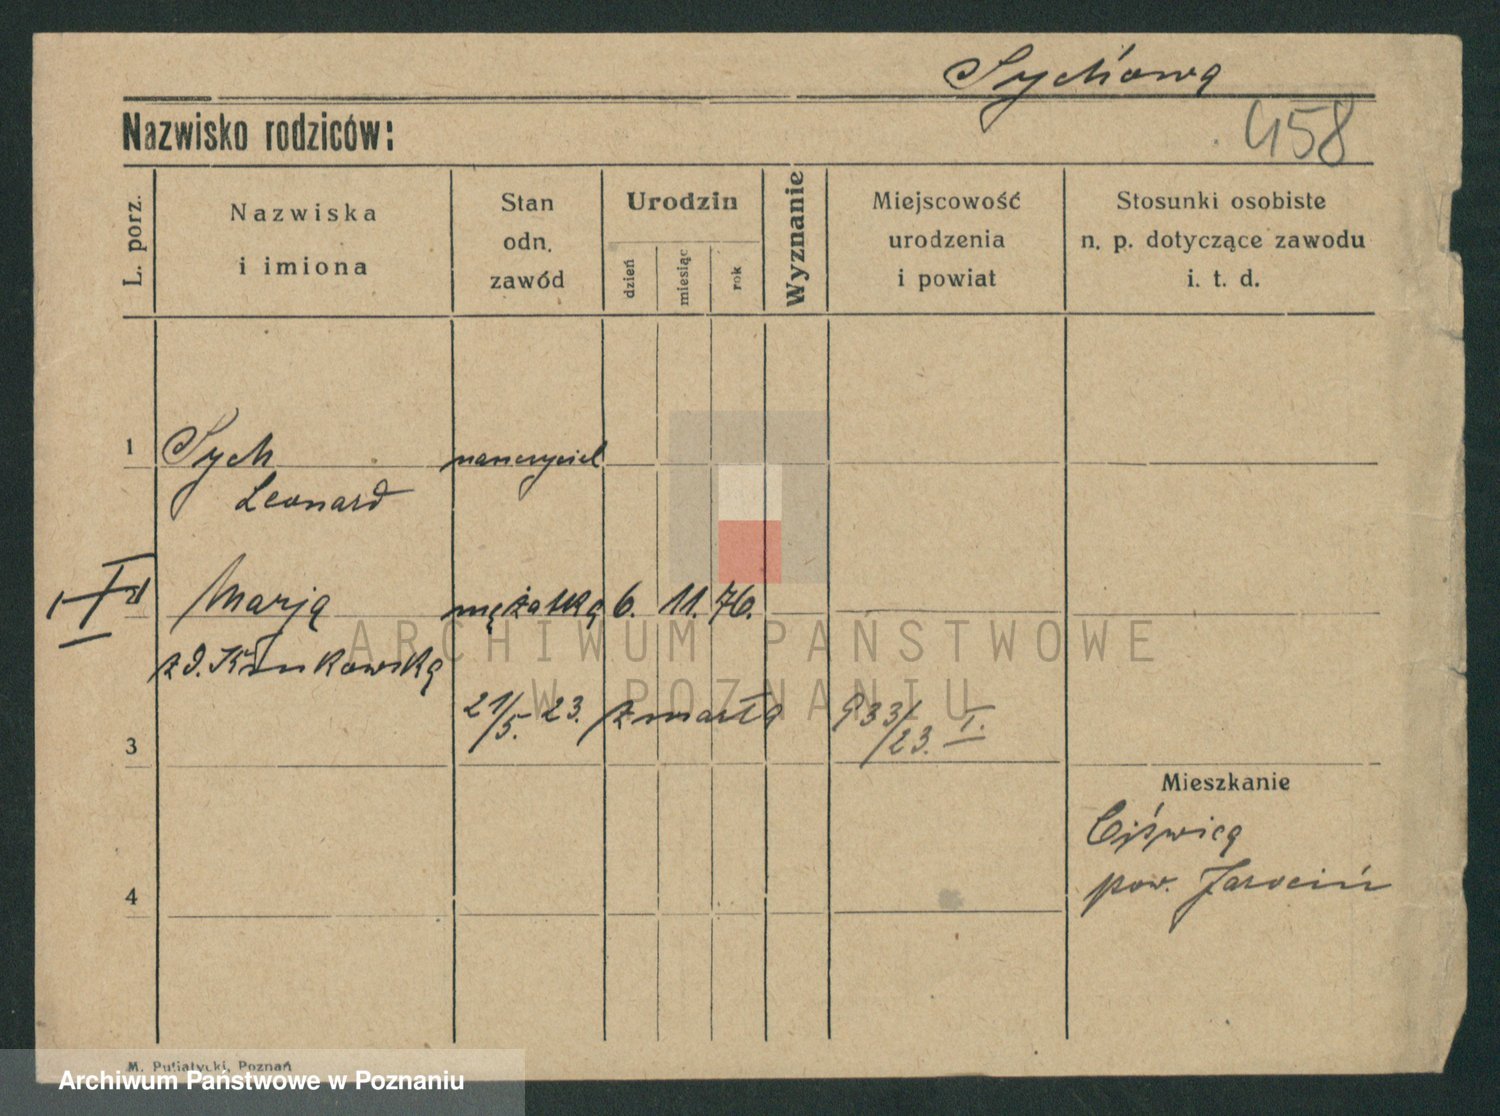 Sychowa
Nazwisko rodziców:
458
L. porz.
Nazwiska
i imiona
Stan
odn.
zawód
Urodzin
dzień
miesiąc
rok
Wyznanie
Miejscowość
urodzenia
i powiat
Stosunki osobiste
n. p. dotyczące zawodu
i. t. d.
1
Sych
nauczyciel
Leonard
I
2
Marja
mężatka
6.
11.
76.
ARCHIWUM PAŃSTWOWE
W POZNANIU
z d.
21/5. 23. zmarła
933/23. I.
3
Mieszkanie
Ciświca
pow. Jarocin
4
M. Putiatycki, Poznań
Archiwum Państwowe w Poznaniu